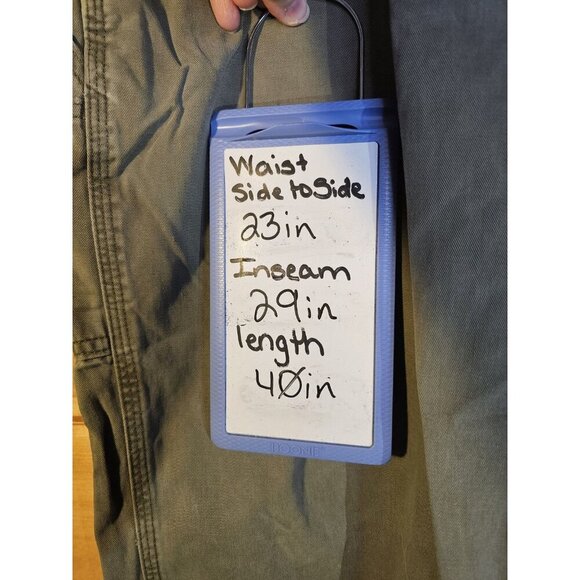 Waist
Side to Side
23in
Inseam
29in
length
40in
BOONE